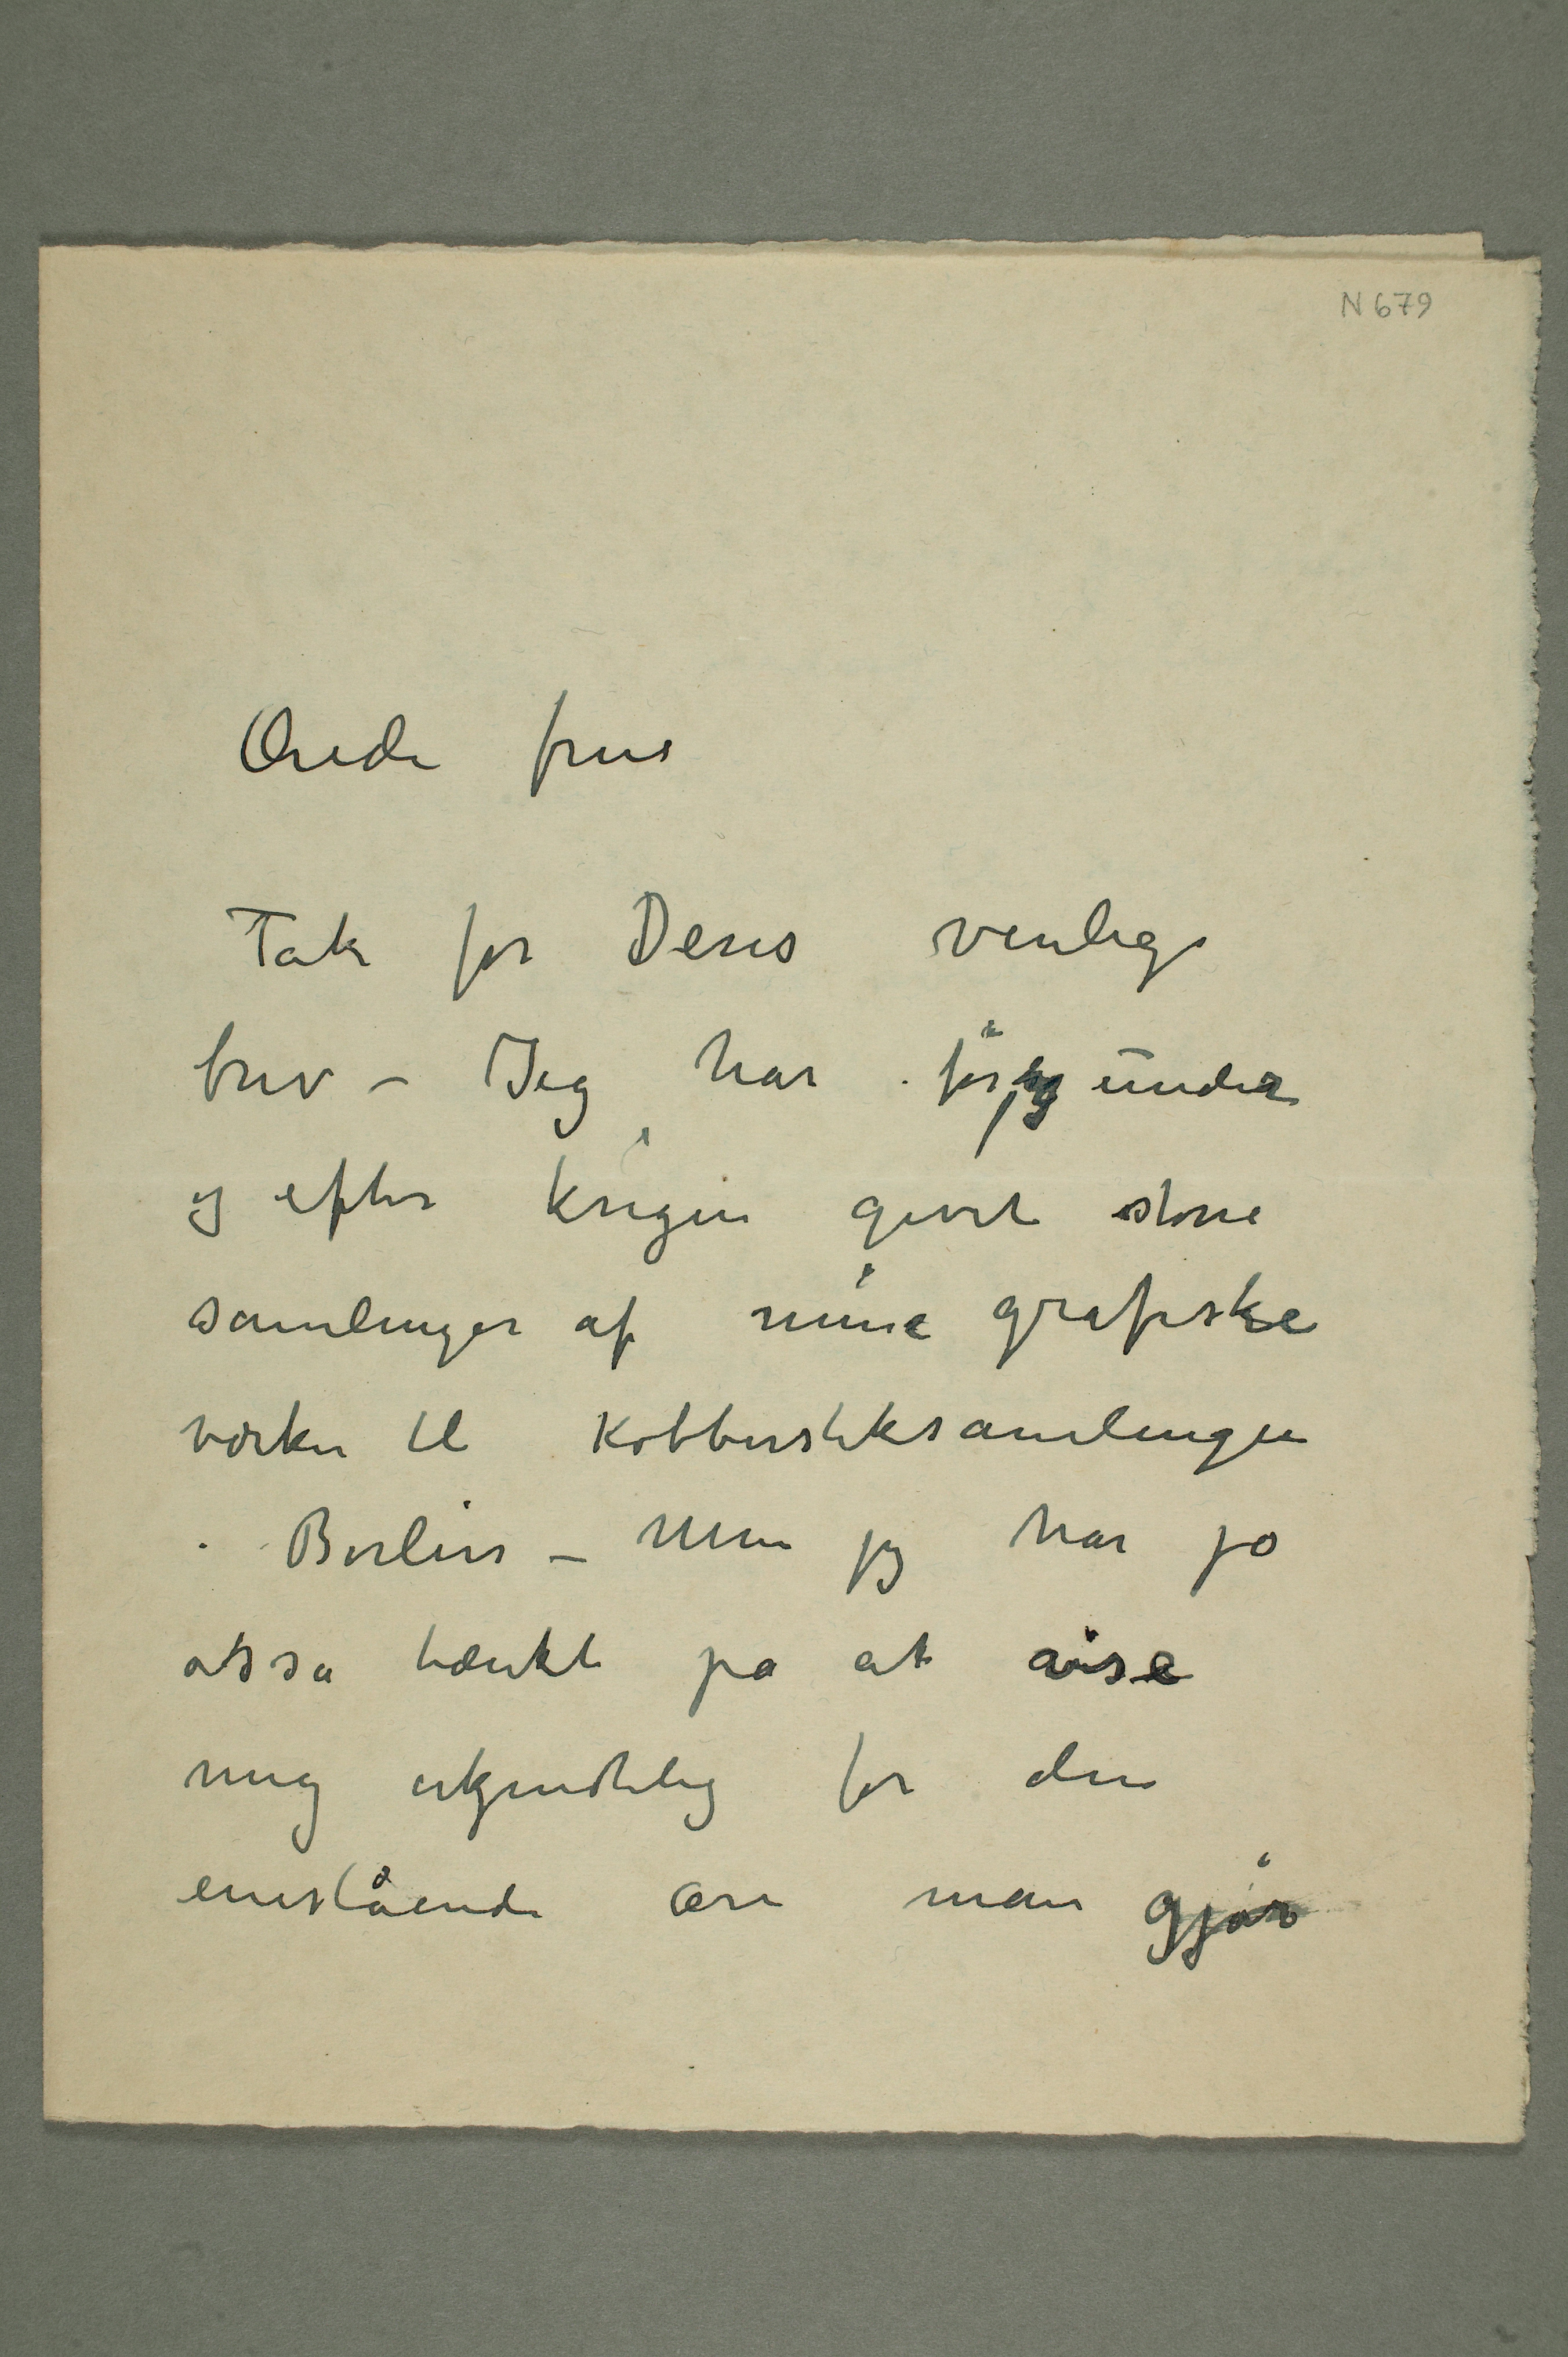 N 679
Ærede frue
Tak for Deres venlige
brev – Jeg har før, og under
og efter krigen givet større
samlinger af mine grafiske
værker til Kobberstiksamlingen
i Berlin – Men jeg har jo
osså tænkt på at vise
mig erkjendtlig for den
enestående ære man gjør